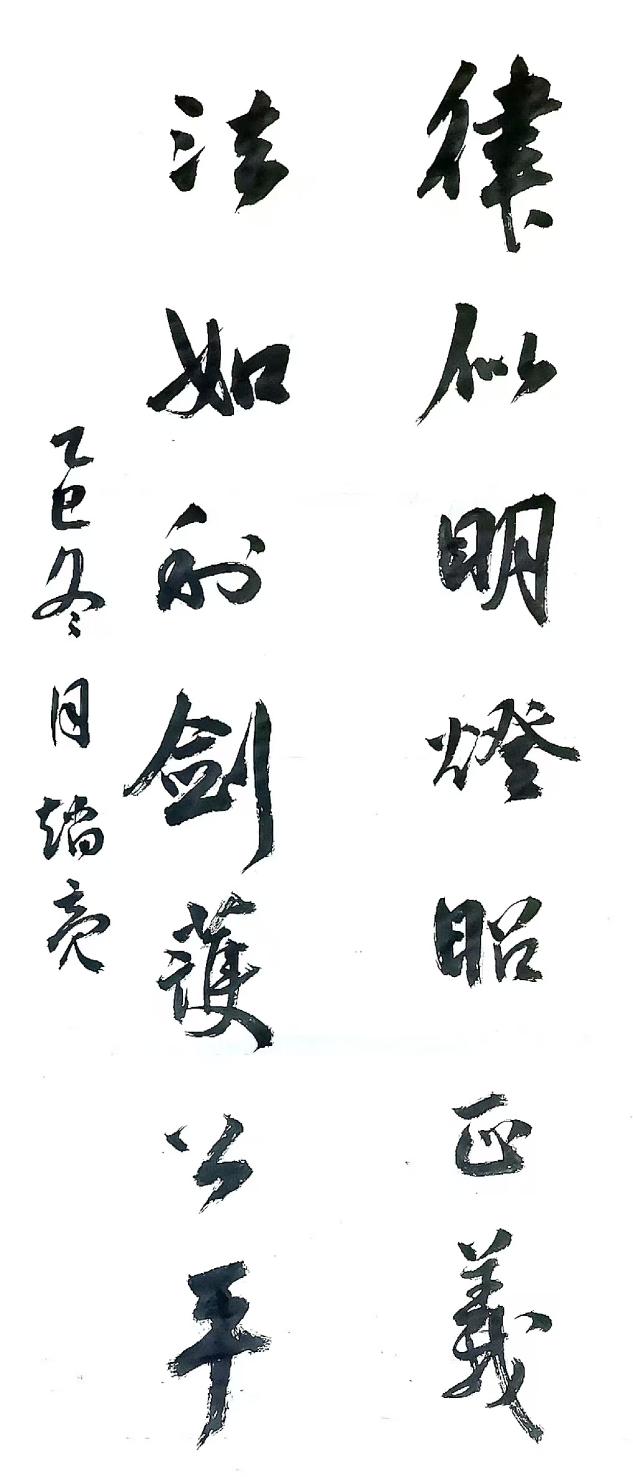 律似明燈昭正義
法如利剑護公平
乙巳冬月 亮